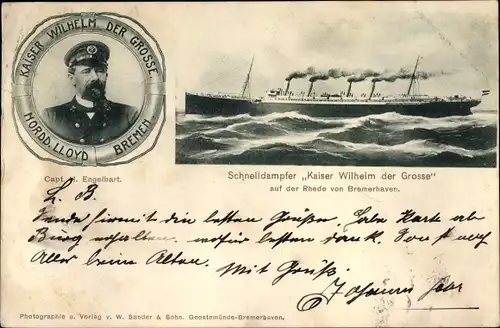 KAISER WILHELM DER GROSSE.
NORDD. LLOYD BREMEN
Capt. H. Engelbart.
Schnelldampfer „Kaiser Wilhelm der Grosse"
auf der Rhede von Bremerhaven.
L. B.
Sende hiermit die besten Grüße. Habe Karte ab
erhalten. wofür besten dank. Sonst noch
Alles beim Alten.
Mit Gruß.
Johann
Photographie u. Verlag v. W. Sander & Sohn. Geestemünde-Bremerhaven.